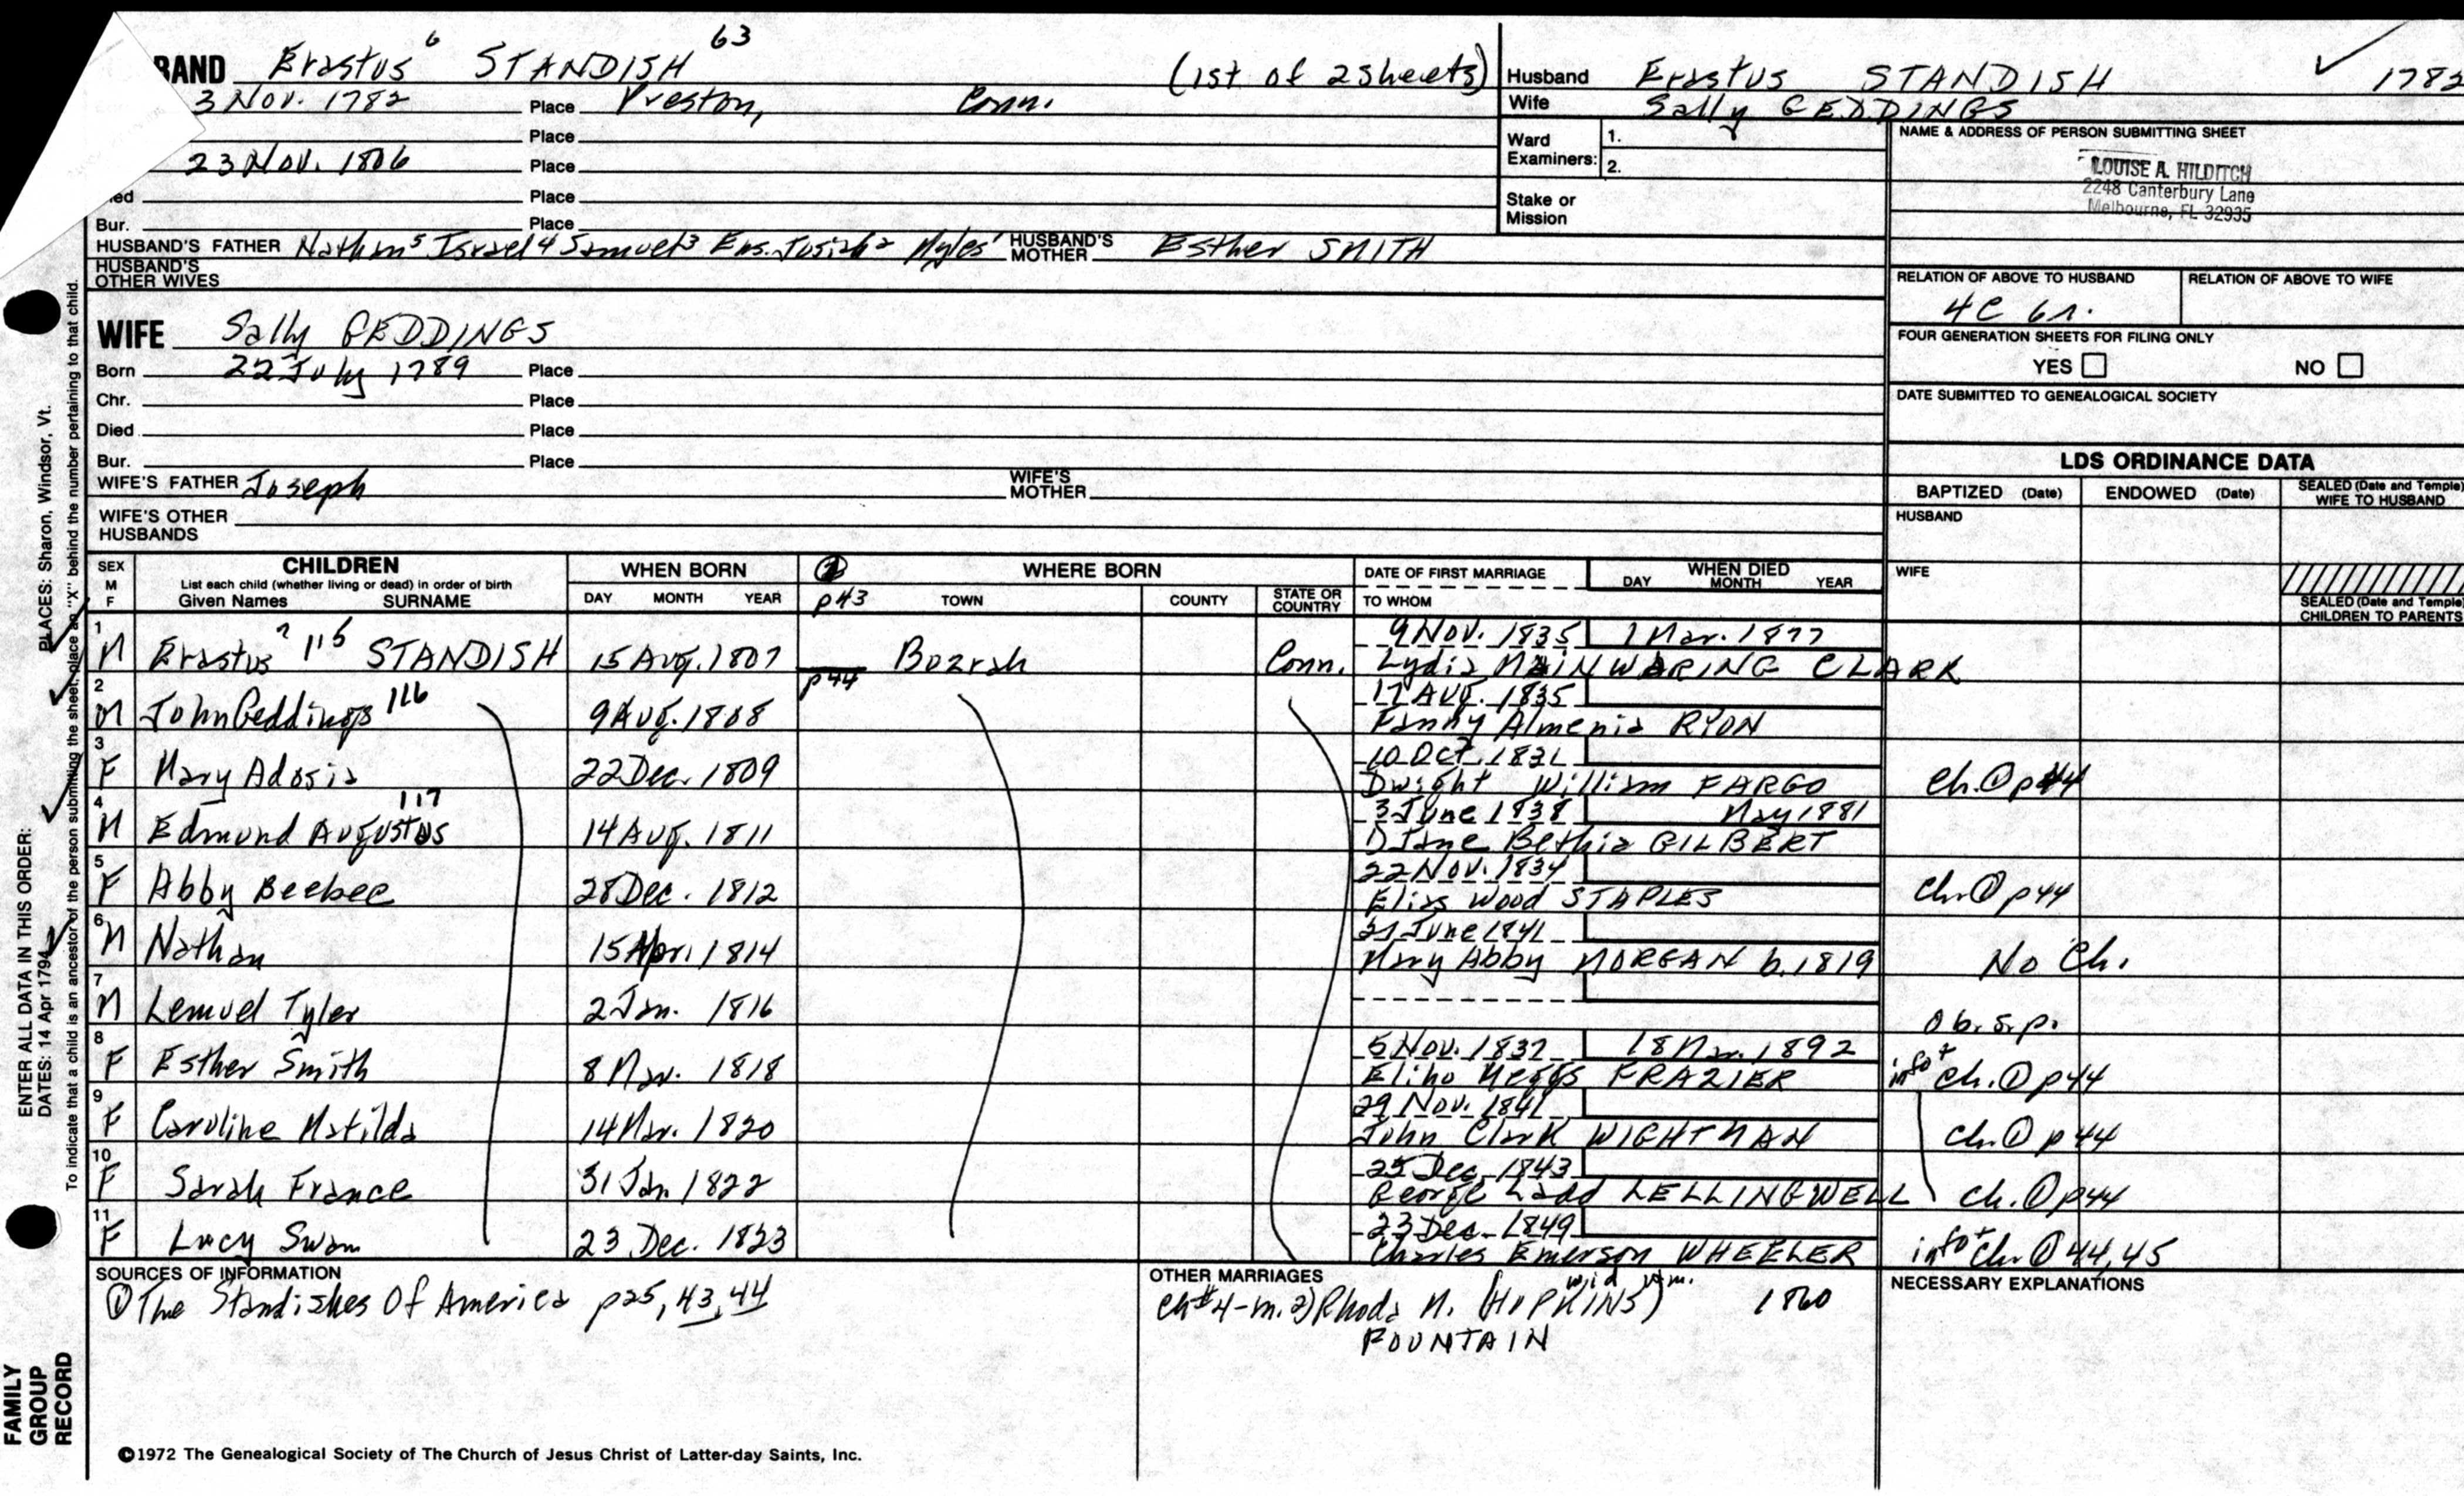 BAND Erastus 6 STANDISH 63 (1st of 2 sheets)
3 Nov. 1782 Place Preston, Conn.
Place
23 Nov. 1806 Place
ied Place
Bur. Place
HUSBAND'S FATHER Nathan 5 Israel 4 Samuel 3 Ens. Josiah 2 Myles 1 HUSBAND'S MOTHER Esther SMITH
HUSBAND'S OTHER WIVES
Husband Erastus STANDISH ✓ 1782
Wife Sally GEDDINGS
Ward Examiners: 1.
2.
Stake or Mission
NAME & ADDRESS OF PERSON SUBMITTING SHEET
LOUISE A. HILDITCH
2248 Canterbury Lane
Melbourne, FL 32935
RELATION OF ABOVE TO HUSBAND RELATION OF ABOVE TO WIFE
4C 6r.
FOUR GENERATION SHEETS FOR FILING ONLY
YES NO
DATE SUBMITTED TO GENEALOGICAL SOCIETY
WIFE Sally GEDDINGS
Born 22 July 1789 Place
Chr. Place
Died Place
Bur. Place
WIFE'S FATHER Joseph WIFE'S MOTHER
WIFE'S OTHER HUSBANDS
LDS ORDINANCE DATA
BAPTIZED (Date) ENDOWED (Date) SEALED (Date and Temple) WIFE TO HUSBAND
HUSBAND
WIFE
SEALED (Date and Temple) CHILDREN TO PARENTS
SEX M F CHILDREN List each child (whether living or dead) in order of birth Given Names SURNAME WHEN BORN DAY MONTH YEAR p43 WHERE BORN TOWN COUNTY STATE OR COUNTRY DATE OF FIRST MARRIAGE TO WHOM WHEN DIED DAY MONTH YEAR
1 M Erastus 7 115 STANDISH 15 Aug. 1807 Bozrah Conn. 9 Nov. 1835 1 Mar. 1877
Lydia MAINWARING CLARK
p44
2 M John Geddings 116 9 Aug. 1808 17 Aug. 1835
Fanny Almenia RYON
3 F Mary Adosia 22 Dec. 1809 10 Oct. 1831
Dwight William FARGO ch. ① p44
4 M Edmund Augustus 117 14 Aug. 1811 3 June 1838 May 1881
Jane Bethia GILBERT
5 F Abby Beebee 28 Dec. 1812 22 Nov. 1834
Elias Wood STAPLES ch. ① p44
6 M Nathan 15 Apr. 1814 21 June 1841
Mary Abby MORGAN b. 1819 No Ch.
7 M Lemuel Tyler 2 Jan. 1816
ob. s. p.
8 F Esther Smith 8 Mar. 1818 5 Nov. 1837 18 Mar. 1892
Eliho Meggs FRAZIER info + ch. ① p44
9 F Caroline Matilda 14 Mar. 1820 29 Nov. 1841
John Clark WIGHTMAN ch. ① p44
10 F Sarah France 31 Jan 1822 25 Dec. 1843
George Ladd LELLINGWELL ch. ① p44
11 F Lucy Swan 23 Dec. 1823 23 Dec. 1849
Charles Emerson WHEELER info + ch ① 44, 45
SOURCES OF INFORMATION
① The Standishes Of America p25, 43, 44
OTHER MARRIAGES
ch#4-m. 2) Rhoda M. (HOPKINS) wid Wm. 1860
FOUNTAIN
NECESSARY EXPLANATIONS
©1972 The Genealogical Society of The Church of Jesus Christ of Latter-day Saints, Inc.
ENTER ALL DATA IN THIS ORDER:
DATES: 14 Apr 1794 PLACES: Sharon, Windsor, Vt.
To indicate that a child is an ancestor of the person submitting the sheet, place an "X" behind the number pertaining to that child.
FAMILY
GROUP
RECORD